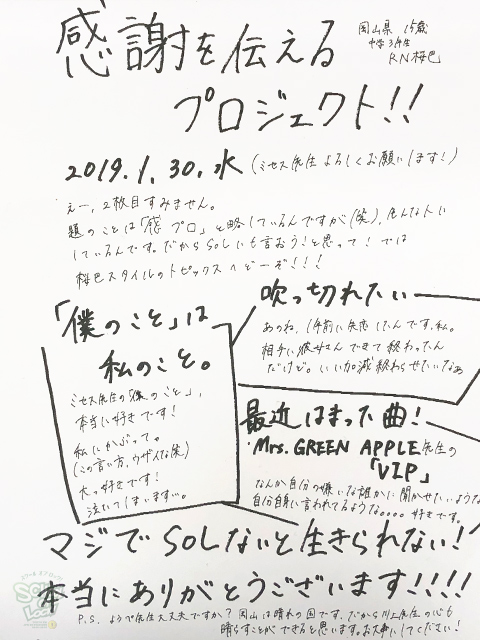 感謝を伝える
プロジェクト!!
岡山県 15歳
中学3年生
RN桜巴
2019.1.30.水 (ミセス先生よろしくお願いします!)
えー、2枚目すみません。
題のことは「感プロ」と略しているんですが(笑)、色んな人に
しているんです。だからSOLにも言おう!と思って!では
桜巴スタイルのトピックスへどーぞ!!!
「僕のこと」は
私のこと。
ミセス先生の「僕のこと」、
本当に好きです!
私にかぶって。
(この言い方、ウザイな笑)
大っ好きです!
泣いてしまいます…。
吹っ切れたい
あのね、1年前に失恋したんです、私。
相手に彼女さんできて終わったん
だけど。いい加減終わらせたいなぁ
最近はまった曲!
・Mrs. GREEN APPLE先生の
「VIP」
なんか自分の嫌いな誰かに聞かせたいような
自分自身に言われてるような。。。。好きです。
マジでSOLないと生きられない!
本当にありがとうございます!!!!
P.S. ようぺ先生大丈夫ですか?岡山は晴れの国です。だから川上先生の心も
晴らすことができると思います。お大事にしてください!